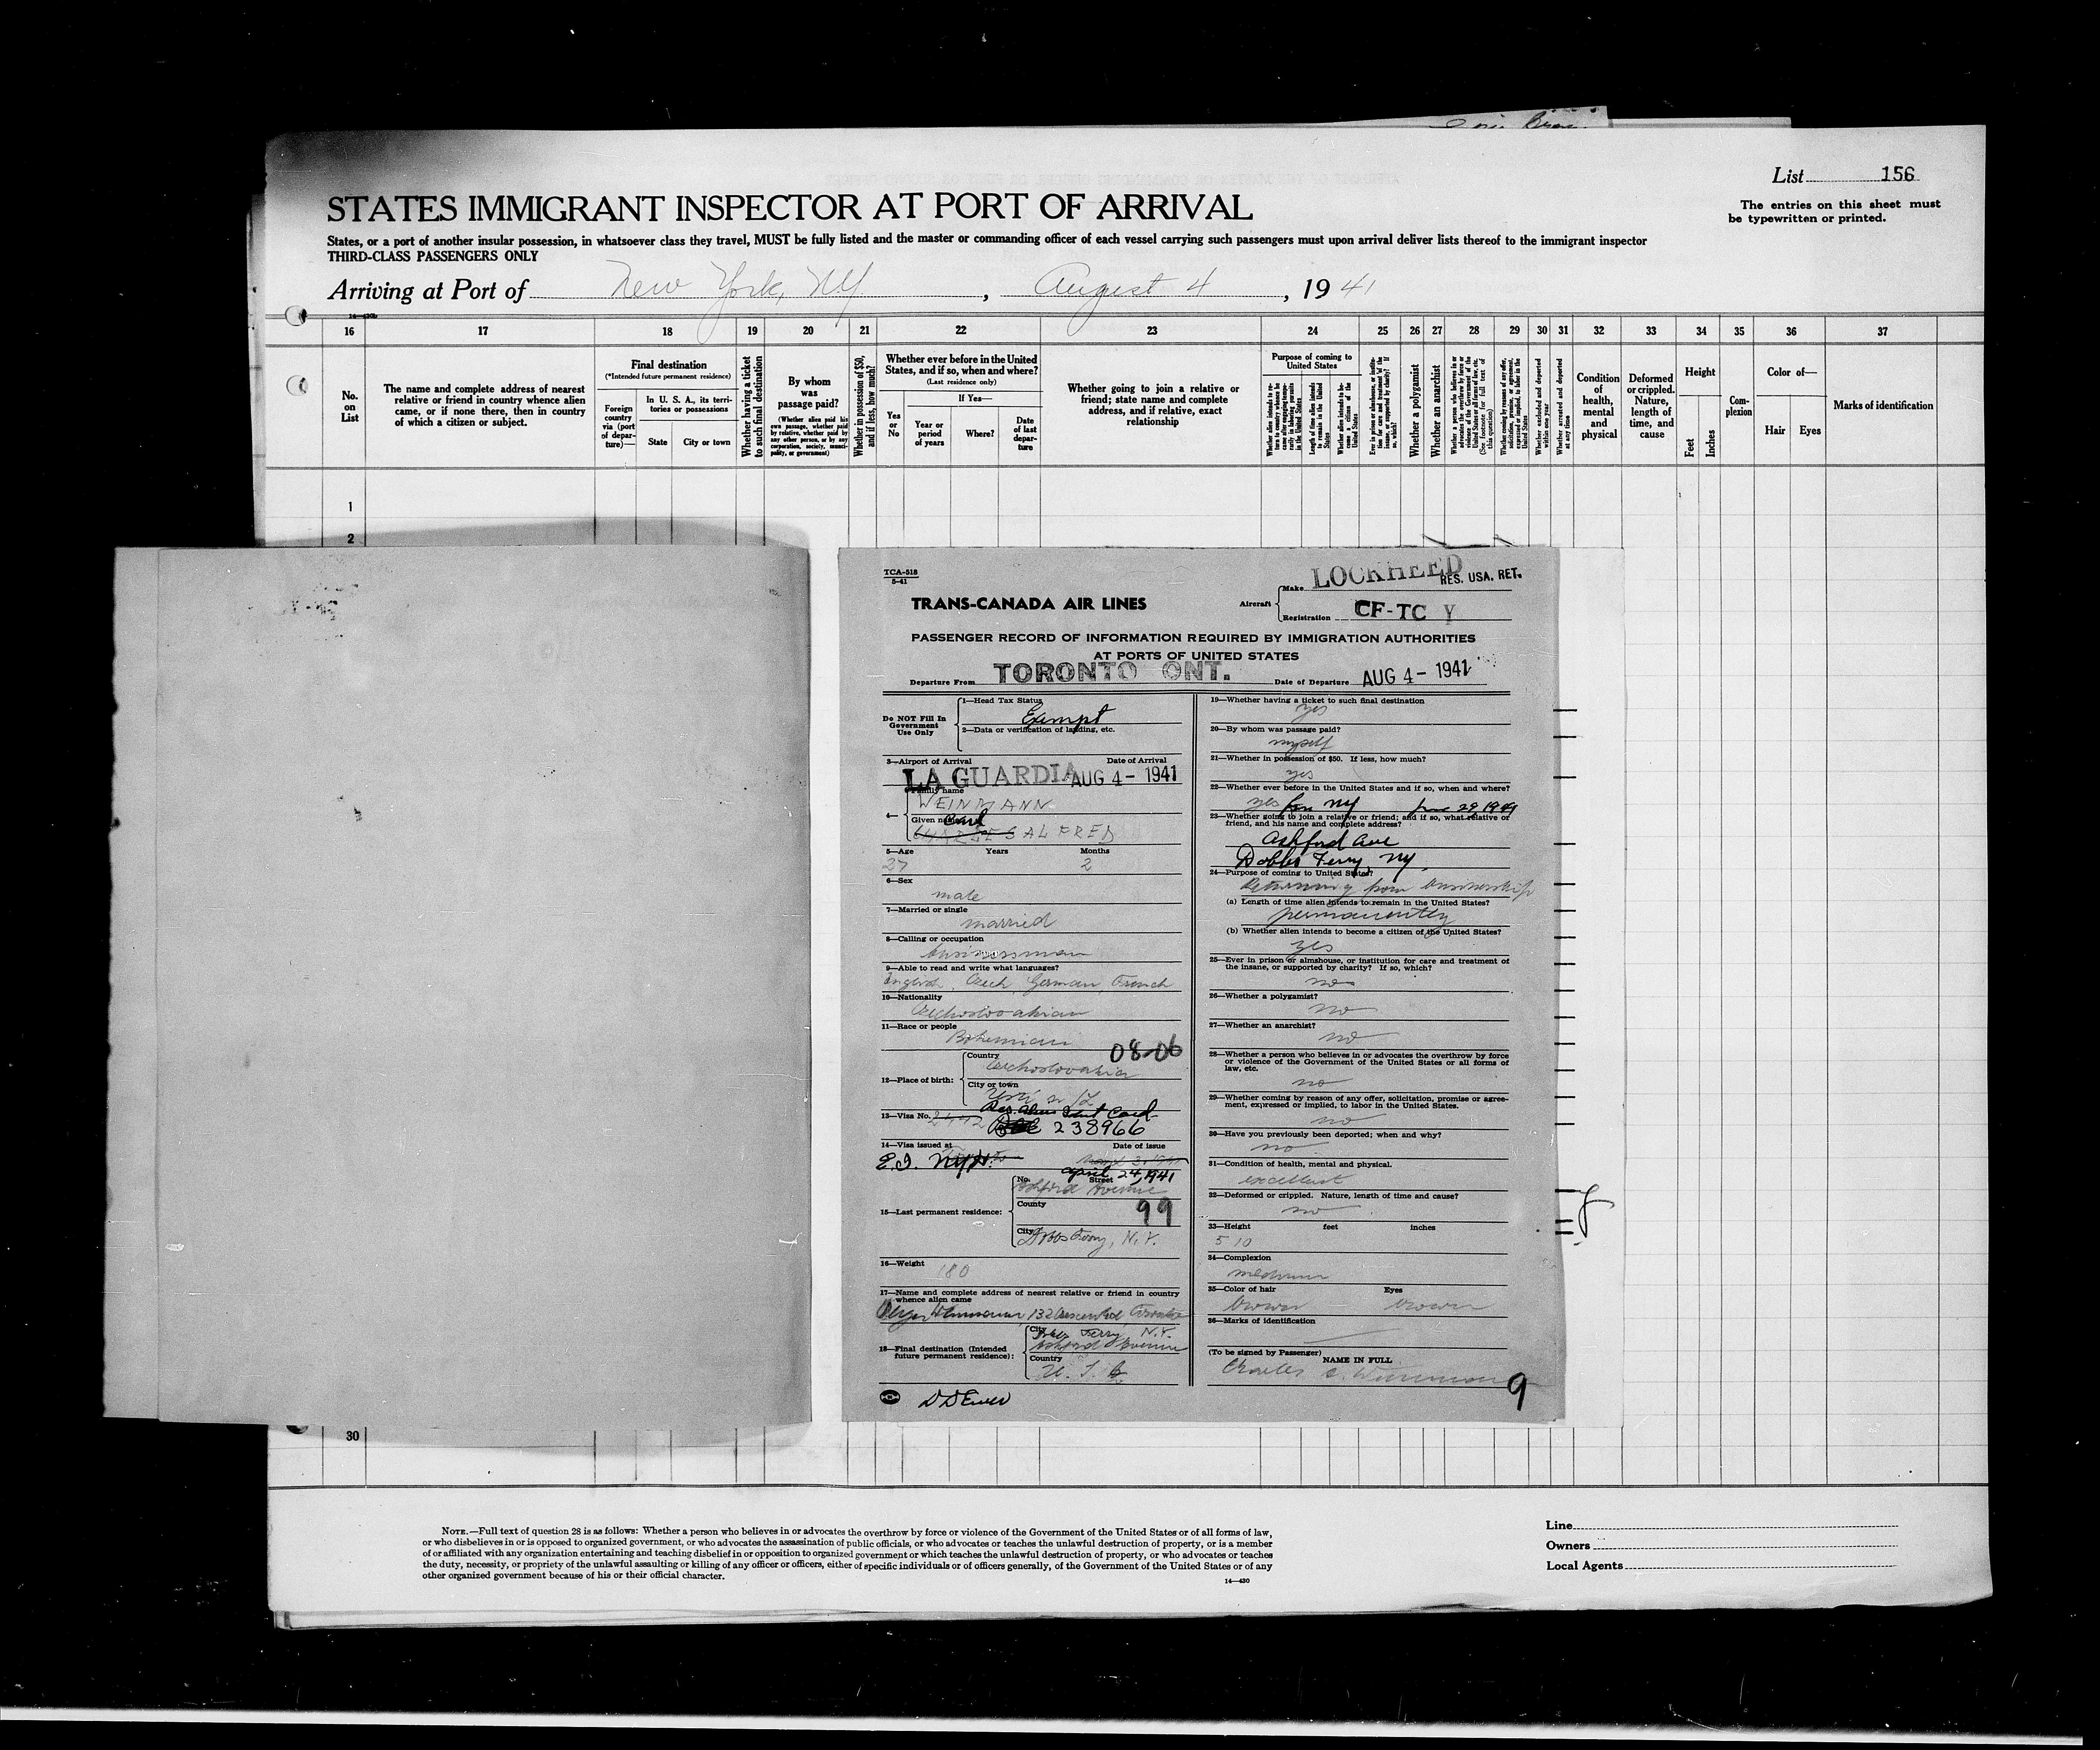 List 156
The entries on this sheet must
be typewritten or printed.
STATES IMMIGRANT INSPECTOR AT PORT OF ARRIVAL
States, or a port of another insular possession, in whatsoever class they travel, MUST be fully listed and the master or commanding officer of each vessel carrying such passengers must upon arrival deliver lists thereof to the immigrant inspector
THIRD-CLASS PASSENGERS ONLY
Arriving at Port of New York, NY, August 4, 1941
16 17 18 19 20 21 22 23 24 25 26 27 28 29 30 31 32 33 34 35 36 37
No. on List
The name and complete address of nearest
relative or friend in country whence alien
came, or if none there, then in country
of which a citizen or subject.
Final destination
(*Intended future permanent residence)
Foreign country via (port of departure)—
In U. S. A., its territories or possessions
State
City or town
Whether having a ticket to such final destination
By whom was passage paid?
(Whether alien paid his own passage, whether paid by relative, whether paid by any other person, or by any corporation, society, municipality, or government)
Whether in possession of $50, and if less, how much?
Whether ever before in the United
States, and if so, when and where?
(Last residence only)
If Yes—
Yes or No
Year or period of years
Where?
Date of last departure
Whether going to join a relative or
friend; state name and complete
address, and if relative, exact
relationship
Purpose of coming to
United States
Whether a polygamist
Whether an anarchist
Condition of health, mental and physical
Deformed or crippled. Nature, length of time, and cause
Height
Feet
Inches
Complexion
Color of—
Hair
Eyes
Marks of identification
1
2
30
TCA-518
5-41
TRANS-CANADA AIR LINES
Aircraft
Make LOCKHEED
RES. USA. RET.
Registration CF-TC Y
PASSENGER RECORD OF INFORMATION REQUIRED BY IMMIGRATION AUTHORITIES
AT PORTS OF UNITED STATES
Departure From TORONTO ONT.
Date of Departure AUG 4 - 1941
Do NOT Fill In
Government
Use Only
1—Head Tax Status
Exempt
2—Data or verification of landing, etc.
3—Airport of Arrival
Date of Arrival
LA GUARDIA AUG 4 - 1941
Family name
WEINMANN
4—
Given name
Carl
CHARLES ALFRED
5—Age Years Months
27 2
6—Sex
male
7—Married or single
married
8—Calling or occupation
businessman
9—Able to read and write what languages?
English, Czech, German, French
10—Nationality
Czechoslovakian
11—Race or people
Bohemian
08-06
12—Place of birth:
Country
Czechoslovakia
City or town
Usti n/L
13—Visa No. 2492
Res. Alien Ident Card
238966
14—Visa issued at
Date of issue
E.I. NY
April 24, 1941
15—Last permanent residence:
No. Street
Ashford Avenue
County
99
City
Dobbs Ferry, N.Y.
16—Weight
180
17—Name and complete address of nearest relative or friend in country
whence alien came
Weinmann, 132 Toronto
18—Final destination (Intended
future permanent residence):
City
Dobbs Ferry, N.Y.
Ashford Avenue
Country
U. S. A
19—Whether having a ticket to such final destination
yes
20—By whom was passage paid?
myself
21—Whether in possession of $50. If less, how much?
yes
22—Whether ever before in the United States and if so, when and where?
yes NY 29, 1941
23—Whether going to join a relative or friend; and if so, what relative or
friend, and his name and complete address?
Ashford Ave
Dobbs Ferry, NY
24—Purpose of coming to United States?
Returning from businesstrip
(a) Length of time alien intends to remain in the United States?
permanently
(b) Whether alien intends to become a citizen of the United States?
yes
25—Ever in prison or almshouse, or institution for care and treatment of
the insane, or supported by charity? If so, which?
no
26—Whether a polygamist?
no
27—Whether an anarchist?
no
28—Whether a person who believes in or advocates the overthrow by force
or violence of the Government of the United States or all forms of
law, etc.
no
29—Whether coming by reason of any offer, solicitation, promise or agree-
ment, expressed or implied, to labor in the United States.
no
30—Have you previously been deported; when and why?
no
31—Condition of health, mental and physical.
excellent
32—Deformed or crippled. Nature, length of time and cause?
no
33—Height feet inches
5 10
34—Complexion
medium
35—Color of hair Eyes
brown brown
36—Marks of identification
(To be signed by Passenger)
NAME IN FULL
Charles A. Weinmann
9
NOTE.—Full text of question 28 is as follows: Whether a person who believes in or advocates the overthrow by force or violence of the Government of the United States or of all forms of law,
or who disbelieves in or is opposed to organized government, or who advocates the assassination of public officials, or who advocates or teaches the unlawful destruction of property, or is a member
of or affiliated with any organization entertaining and teaching disbelief in or opposition to organized government or which teaches the unlawful destruction of property, or who advocates or teaches
the duty, necessity, or propriety of the unlawful assaulting or killing of any officer or officers, either of specific individuals or of officers generally, of the Government of the United States or of any
other organized government because of his or their official character.
14—430
Line
Owners
Local Agents